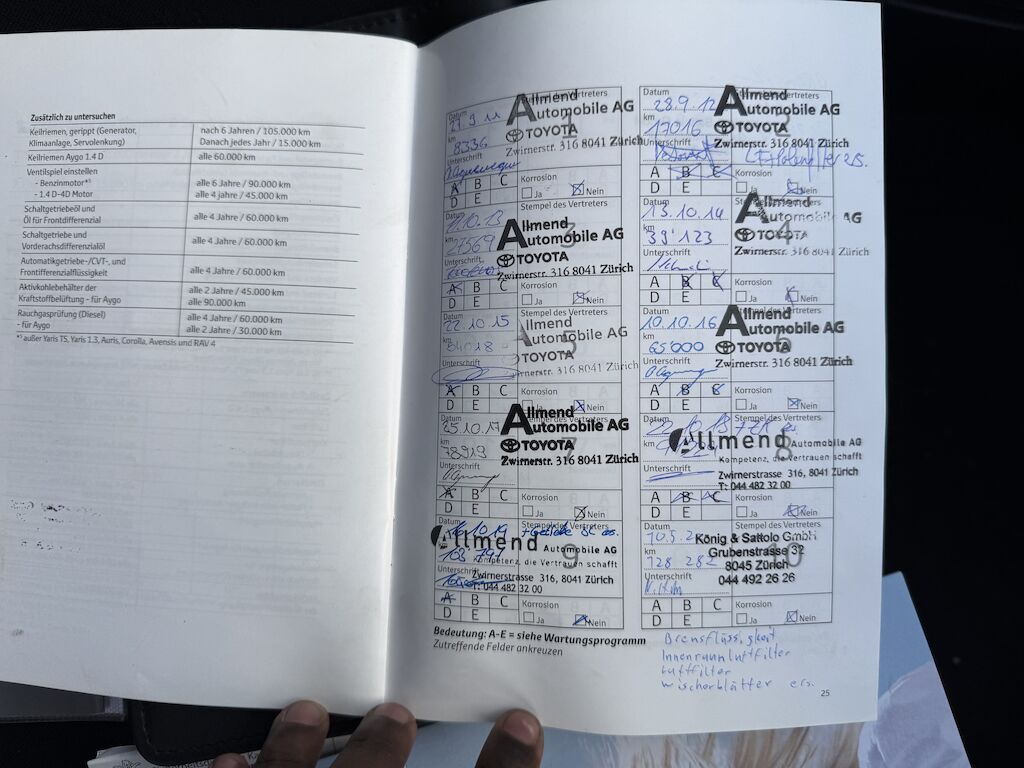 Zusätzlich zu untersuchen
Keilriemen, gerippt (Generator, Klimaanlage, Servolenkung)
nach 6 Jahren / 105.000 km
Danach jedes Jahr / 15.000 km
Keilriemen Aygo 1.4 D
alle 60.000 km
Ventilspiel einstellen
- Benzinmotor*¹
alle 6 Jahre / 90.000 km
- 1.4 D-4D Motor
alle 4 Jahre / 45.000 km
Schaltgetriebeöl und
Öl für Frontdifferenzial
alle 4 Jahre / 60.000 km
Schaltgetriebe und
Vorderachsdifferenzialöl
alle 4 Jahre / 60.000 km
Automatikgetriebe-/CVT-, und
Frontdifferenzialflüssigkeit
alle 4 Jahre / 60.000 km
Aktivkohlebehälter der
Kraftstoffbelüftung - für Aygo
alle 2 Jahre / 45.000 km
alle 90.000 km
Rauchgasprüfung (Diesel)
- für Aygo
alle 4 Jahre / 60.000 km
alle 2 Jahre / 30.000 km
*¹ außer Yaris TS, Yaris 1.3, Auris, Corolla, Avensis und RAV 4
Datum
27.9.11
km
8336
Unterschrift
Allmend
Automobile AG
TOYOTA
Zwirnerstr. 316 8041 Zürich
1
A B C
D E
Korrosion
Ja Nein
Datum
28.9.12
km
17016
Unterschrift
Stempel des Vertreters
Allmend
Automobile AG
TOYOTA
Zwirnerstr. 316 8041 Zürich
2
A B C
D E
Korrosion
Ja Nein
Datum
2.10.13
km
27569
Unterschrift
Stempel des Vertreters
Allmend
Automobile AG
TOYOTA
Zwirnerstr. 316 8041 Zürich
3
A B C
D E
Korrosion
Ja Nein
Datum
13.10.14
km
39'123
Unterschrift
Stempel des Vertreters
Allmend
Automobile AG
TOYOTA
Zwirnerstr. 316 8041 Zürich
4
A B C
D E
Korrosion
Ja Nein
Datum
22.10.15
km
Unterschrift
Stempel des Vertreters
Allmend
Automobile AG
TOYOTA
Zwirnerstr. 316 8041 Zürich
5
A B C
D E
Korrosion
Ja Nein
Datum
10.10.16
km
65'000
Unterschrift
Stempel des Vertreters
Allmend
Automobile AG
TOYOTA
Zwirnerstr. 316 8041 Zürich
6
A B C
D E
Korrosion
Ja Nein
Datum
25.10.17
km
78919
Unterschrift
Stempel des Vertreters
Allmend
Automobile AG
TOYOTA
Zwirnerstr. 316 8041 Zürich
7
A B C
D E
Korrosion
Ja Nein
Allmend Automobile AG
Kompetenz, die Vertrauen schafft
Zwirnerstrasse 316, 8041 Zürich
T: 044 482 32 00
8
A B C
D E
Korrosion
Ja Nein
Datum
Stempel des Vertreters
km
Unterschrift
Allmend Automobile AG
Kompetenz, die Vertrauen schafft
Zwirnerstrasse 316, 8041 Zürich
T: 044 482 32 00
9
A B C
D E
Korrosion
Ja Nein
Datum
km
128 282
Unterschrift
Stempel des Vertreters
König & Sattolo GmbH
Grubenstrasse 32
8045 Zürich
044 492 26 26
10
A B C
D E
Korrosion
Ja Nein
Bedeutung: A-E = siehe Wartungsprogramm
Zutreffende Felder ankreuzen
Bremsflüssigkeit
Innenraumluftfilter
Luftfilter
Wischerblätter ers.
25